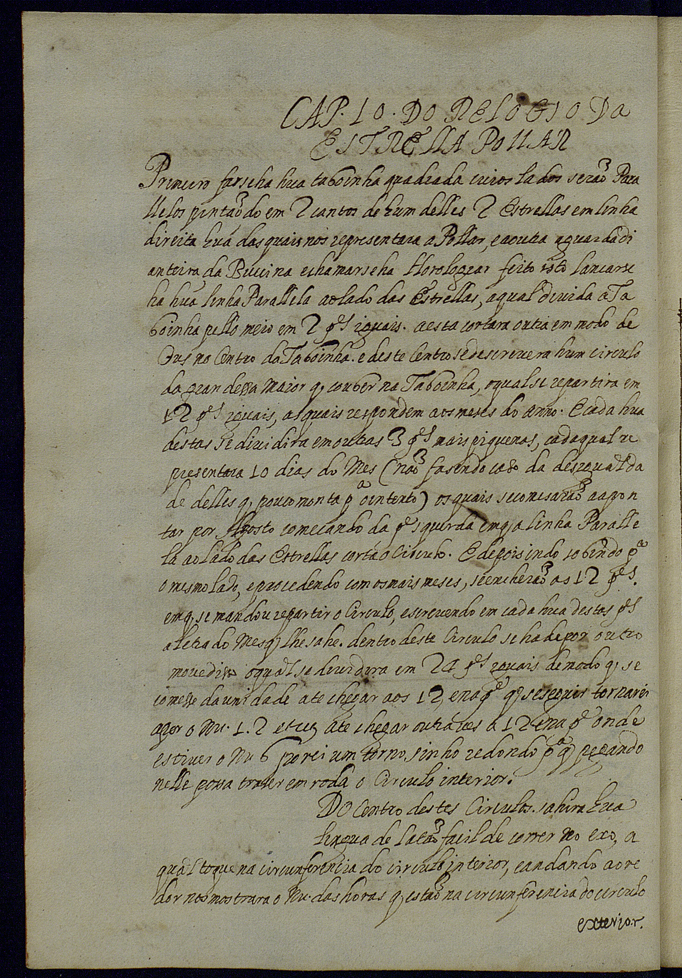 CAP. 10. DO RELOGIO Da
ESTRELLA POLLAR
Primeiro farseha hũa taboinha quadrada cuios lados seraõ Para
llelos pintaõdo em 2 cantos de hum delles 2 Estrellas em linha
direita hũa das quais nos representara a Pollar, e a outra a guarda di
anteira da Buzina e chamarseha Horologear feito isto lancarse
ha hũa linha Parallela ao lado das Estrellas, a qual devida a Ta
boinha pello meio em 2 p.es iguais. a esta cortara outra em modo de
Crus no Centro da Taboinha. e deste Centro se descrevera hum circulo
da grandessa maior q couber na Taboinha, o qual se repartira em
12 p.es iguais, as quais respondem aos meses do anno. E cada hũa
destas se dividira em outas 3 p.es mais piquenas, cada qual re
presentara 10 dias do Mes (naõ fasendo caso da desigualda
de delles q pouco monta p.a o intento) os quais se comesaraõ a apon
tar por Agosto comecando da p.e esquerda em q a linha Paralle
la ao lado das Estrellas corta o Circulo. E depois indo sobindo p.a
o mesmo lado, e procedendo com os mais meses, se encheraõ as 12 p.es
em q se mandou repartir o Circulo, escrevendo em cada hũa destas p.es
a letra do Mes q lhe sahe. dentro deste Circulo se ha de por outro
movediso o qual se dividira em 24 p.es iguais de modo q se
comese da unidade ate chegar aos 12, e na p.e q se seguir tornareis
a por o Nu. 1. 2 etc.ª ate chegar outra ves a 12 e na p.e onde
estiver o Nu 6 poreis um tornosinho redondo p.a q pegando
nelle possa trazer em roda o Circulo interior.
Do Centro destes Circulos. sahira hũa
lingua de lataõ facil de correr no exo, a
qual toque na circunferencia do circulo interior, e andando ao re
dor nos mostrara o Nu. das horas q estaõ na circunferencia do circulo
exterior.